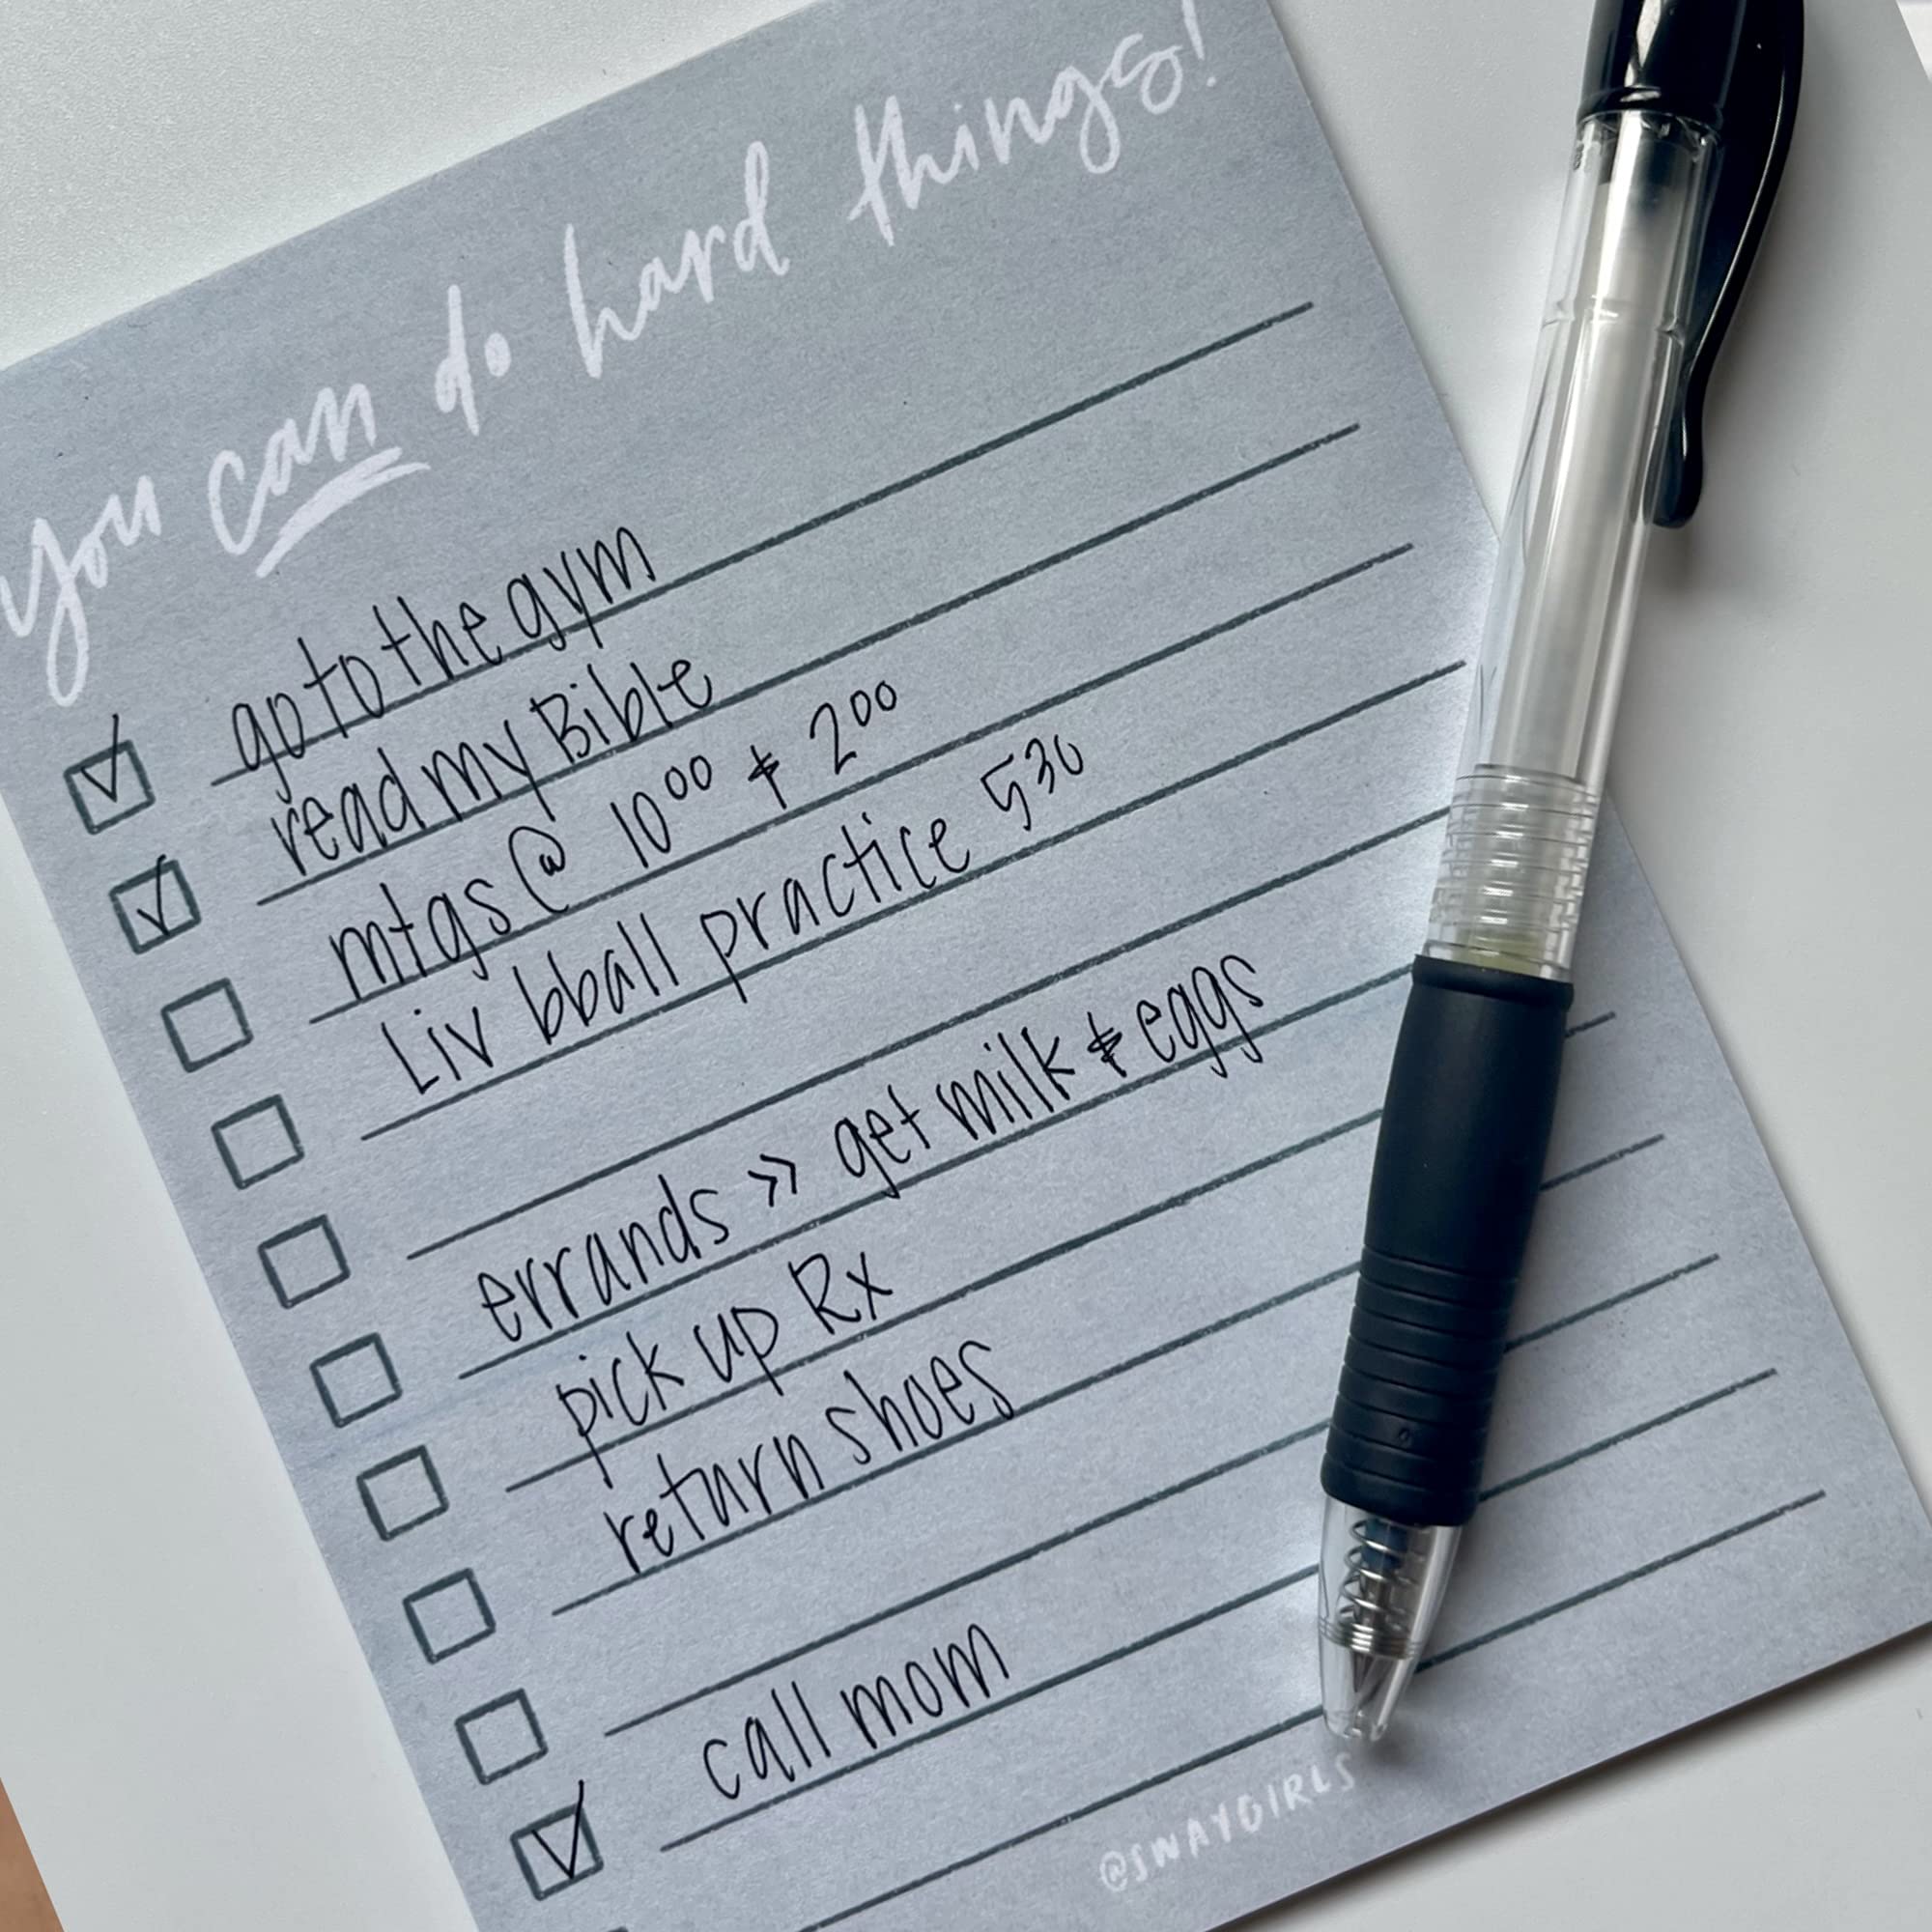 you can do hard things!
go to the gym
read my Bible
mtgs @ 10⁰⁰ & 2⁰⁰
Liv bball practice 5³⁰
errands >> get milk & eggs
pick up Rx
return shoes
call mom
@SWAYGIRLS